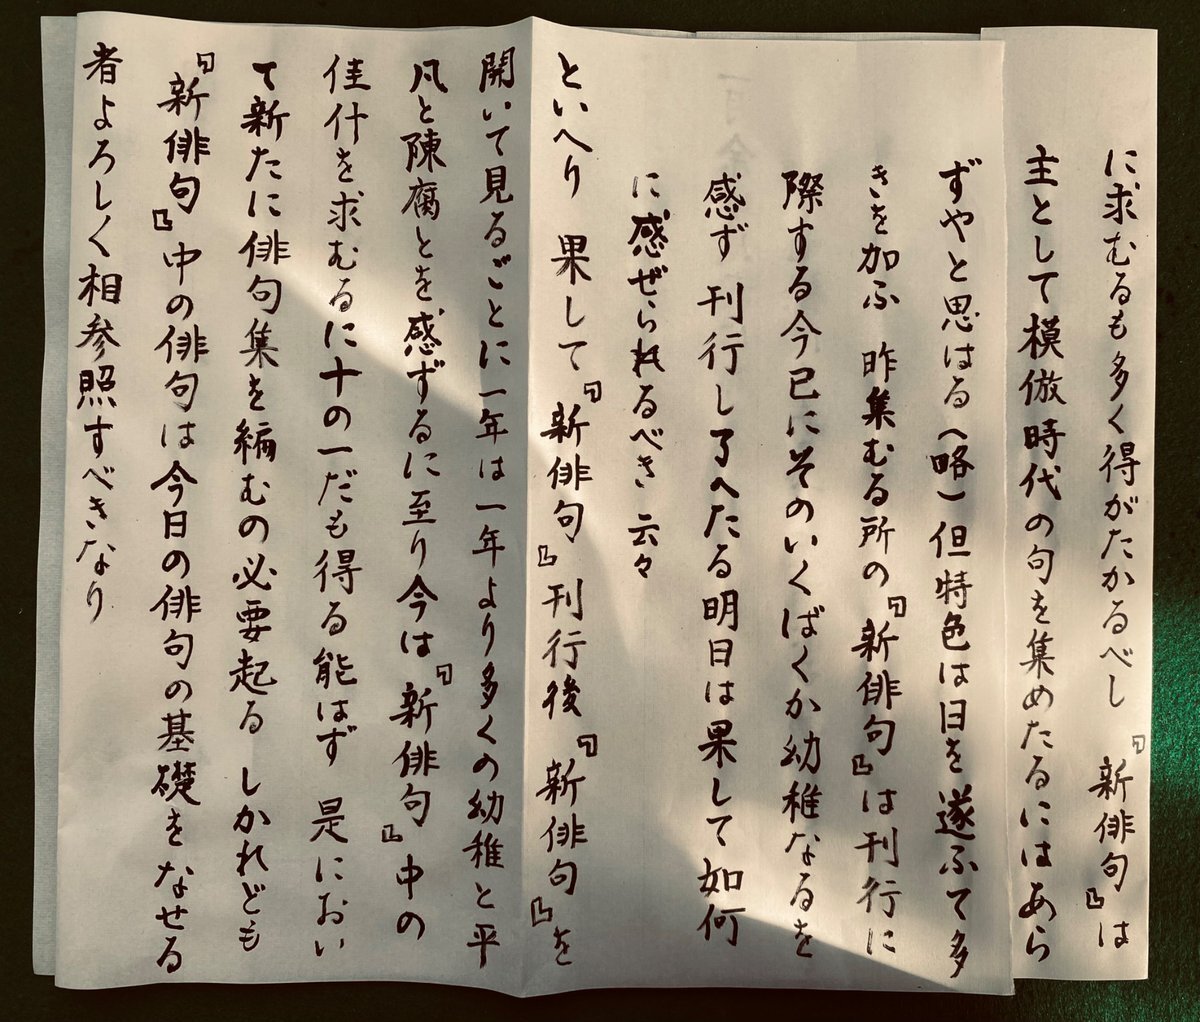 に求むるも多く得がたかるべし 『新俳句』は
主として模倣時代の句を集めたるにはあら
ずやと思はる(略)但特色は日を遂ふて多
きを加ふ 昨集むる所の『新俳句』は刊行に
際する今已にそのいくばくか幼稚なるを
感ず 刊行し了へたる明日は果して如何
に感ぜられるべき 云々
といへり 果して『新俳句』刊行後『新俳句』を
開いて見るごとに一年は一年より多くの幼稚と平
凡と陳腐とを感ずるに至り今は『新俳句』中の
佳什を求むるに十の一だも得る能はず 是におい
て新たに俳句集を編むの必要起る しかれども
『新俳句』中の俳句は今日の俳句の基礎をなせる
者よろしく相参照すべきなり